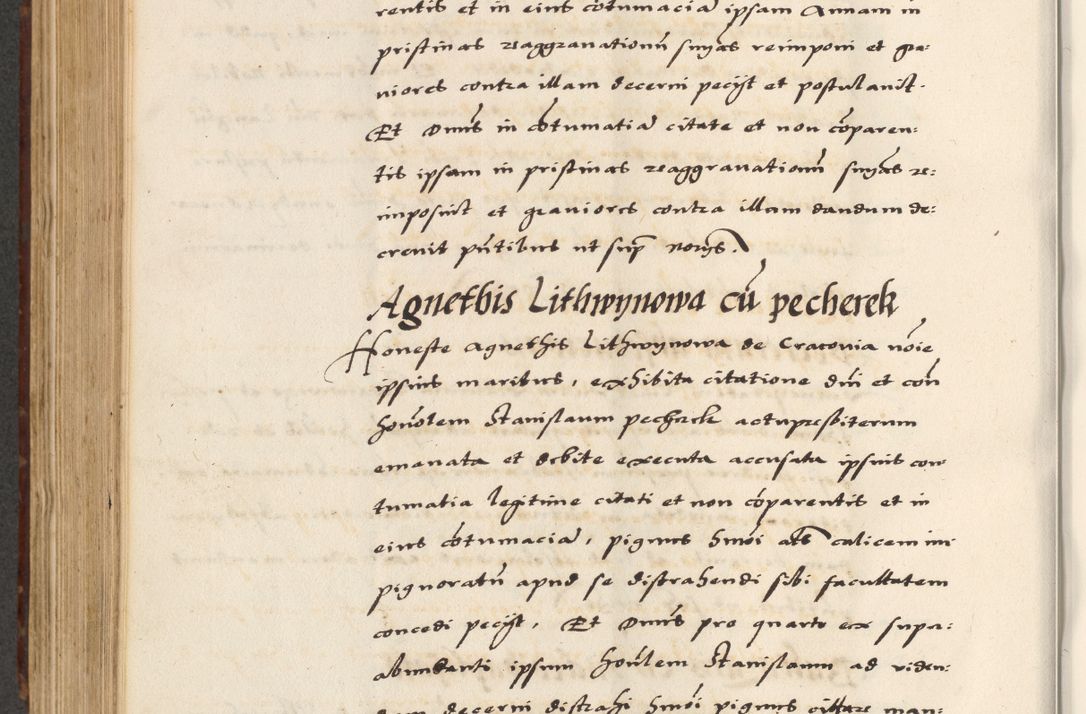 rentis et in eius cōtumaciā ipsam Annam in
pristinas reaggravationū sn̄ias reimponi et gra:
viores contra illam decerni pecijt et postulavit.
Et Dn̄us in cōtumatiā citate et non cōparen:
tis ipsam in pristinas reaggravationū sn̄ias re:
imposuit et graviores contra illam dandum de:
crevit pn̄tibus ut sup̄
Agnethis Lithwynowa cū pecherek
Honeste Agnethis Lithwynowa de Cracovia noīe
ipsius maritus, exhibita citatione dn̄i et con̄
honōlem Stanislaum pecherek actupresbiterum
emanata et debite executa accusata ipsius con
tumatia legitime citati et non cōparentis et in
eius cōtumaciā, pignus hmōi als calicem im
pignoratū apud se distrahendi sibi facultatem
concedi pecijt, Et Dn̄us pro quarto ex supra:
abundanti ipsum honōlem Stanislaum ad viden:
dum decerni distrahi hmōi pignus citare man: